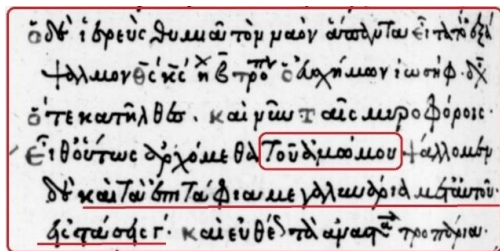 ὁ δὲ ἱερεὺς θυμιᾶ τὸν ναὸν
Θς κς ἦχ β τρο ὁ εὐσχήμων ἰωσήφ. δξ
ὅτε κατῆλθες. καὶ νῦν Ταῖς μυροφόροις.
Εἶθ οὕτως ἀρχόμεθα Τοῦ ἀμώμου ψάλλομεν
δὲ καὶ Τὰ ἐπιτάφια μεγαλυνάρια μετ αὐτοῦ
στάσεις γ. καὶ εὐθὺς τὰ ἀναστ τροπάρια.